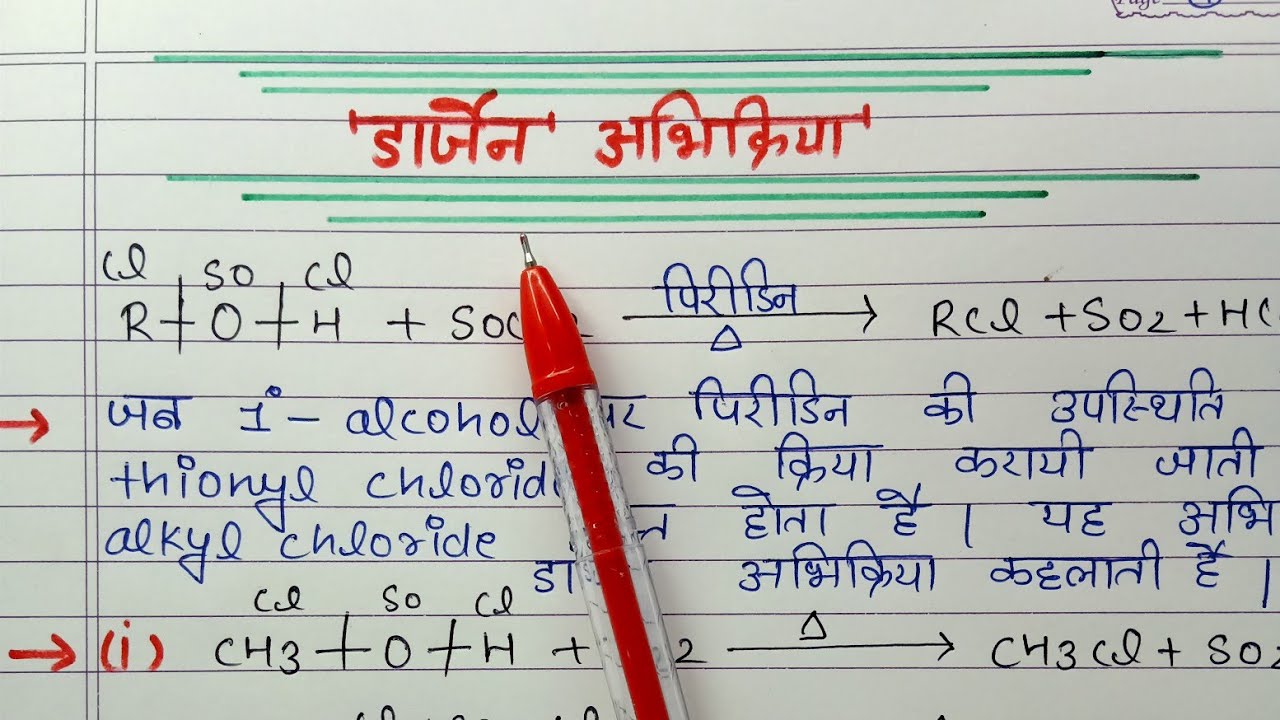 Page
डार्जेन अभिक्रिया
Cl SO Cl
R + O + H + SOC 2 पिरीडिन Δ → RCl + SO2 + HC
→ जब 1°- alcohol पर पिरीडिन की उपस्थिति
thionyl chloride की क्रिया करायी जाती
alkyl chloride होता है। यह अभि
अभिक्रिया कहलाती है।
Cl SO Cl
→ (i) CH3 + O + H + 2 Δ → CH3Cl + SO2